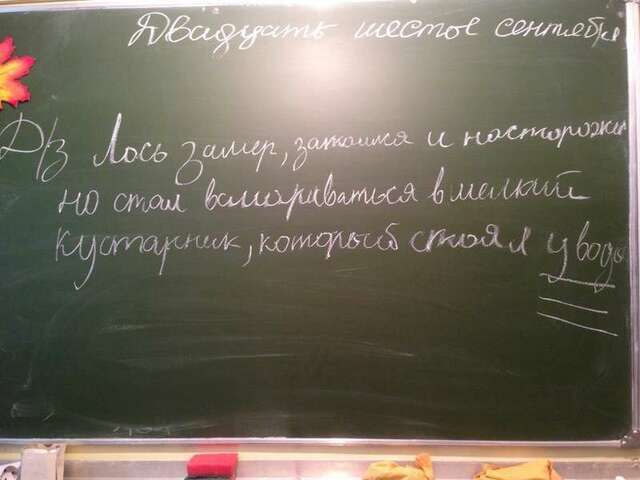 Двадцать шестое сентября
Д/З Лось замер, затаился и насторожен
но стал всматриваться в мелкий
кустарник, который стоял у воды